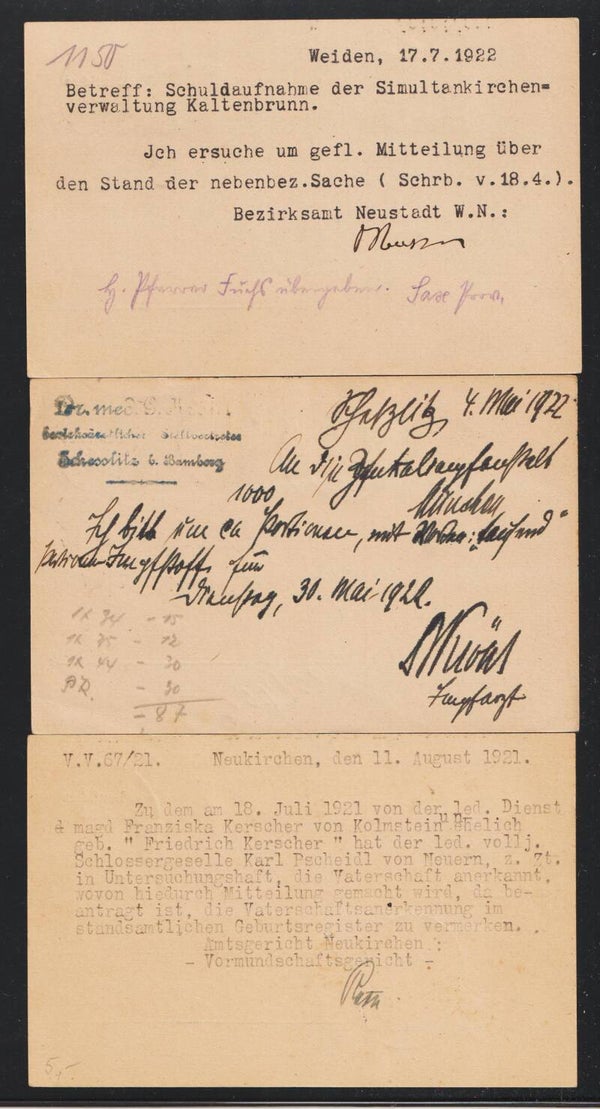 1150
Weiden, 17.7.1922
Betreff: Schuldaufnahme der Simultankirchen=
verwaltung Kaltenbrunn.
Jch ersuche um gefl. Mitteilung über
den Stand der nebenbez.Sache ( Schrb. v.18.4.).
Bezirksamt Neustadt W.N.:
H. Pfarrer Fuchs übergeben.
Dr. med. G.
bezirksärztlicher Stellvertreter
Schesslitz b. Bamberg
Scheßlitz, 4. Mai 1922
An die Zentralimpfanstalt
München
1000
Ich bitte um ca Portionen, mit Worten: "tausend"
Portionen Impfstoff zum
Dienstag, 30. Mai 1922.
1R 34 - 15
1R 35 - 12
1R 44 - 30
PR - 30
- 87
Impfarzt
V.V.67/21. Neukirchen, den 11. August 1921.
Zu dem am 18. Juli 1921 von der led. Dienst
& magd Franziska Kerscher von Kolmstein unehelich
geb. " Friedrich Kerscher " hat der led. vollj.
Schlossergeselle Karl Pscheidl von Neuern, z. Zt.
in Untersuchungshaft, die Vaterschaft anerkannt,
wovon hiedurch Mitteilung gemacht wird, da be-
antragt ist, die Vaterschaftsanerkennung im
standsamtlichen Geburtsregister zu vermerken.
Amtsgericht Neukirchen :
- Vormundschaftsgericht -
5,-